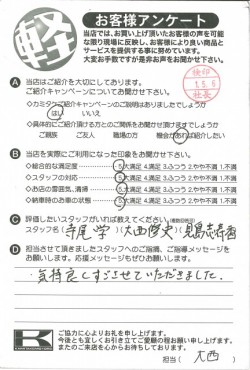 軽
お客様アンケート
当店では、お買い上げ頂いたお客様の声を可
能な限り現場に反映し、お客様により良い商品と
サービスを提供する事に努めています。
大変お手数ですが是非お声をお聞かせ下さい。
検印
1.5.6
社長
A 当店はご紹介を大切にしてあります。
ご紹介キャンペーンについてお聞かせ下さい。
はい いいえ
ご親族 ご友人 職場の方 機会があれば紹介したい
B 当店を実際にご利用になった印象をお聞かせ下さい。
◇総合的な満足度 5.大満足 4.満足 3.ふつう 2.やや不満 1.不満
◇スタッフの対応 5.大満足 4.満足 3.ふつう 2.やや不満 1.不満
◇お店の雰囲気、清掃 5.大満足 4.満足 3.ふつう 2.やや不満 1.不満
◇納車時のお車の状態 5.大満足 4.満足 3.ふつう 2.やや不満 1.不満
C 評価したいスタッフがいれば教えてください。
スタッフ名(寺尾 学)(大西
D 担当させて頂きましたスタッフへのご指導、ご指導メッセージを
お願いします。応援メッセージもぜひお願いします。
気持良くすごさせていただきました。
ご協力に心よりお礼を申し上げます。
今後とも宜しくお引き立てご愛顧の程お願い申し上げます。
またのご来店を心からお待ちしております。
担当( 大西 )